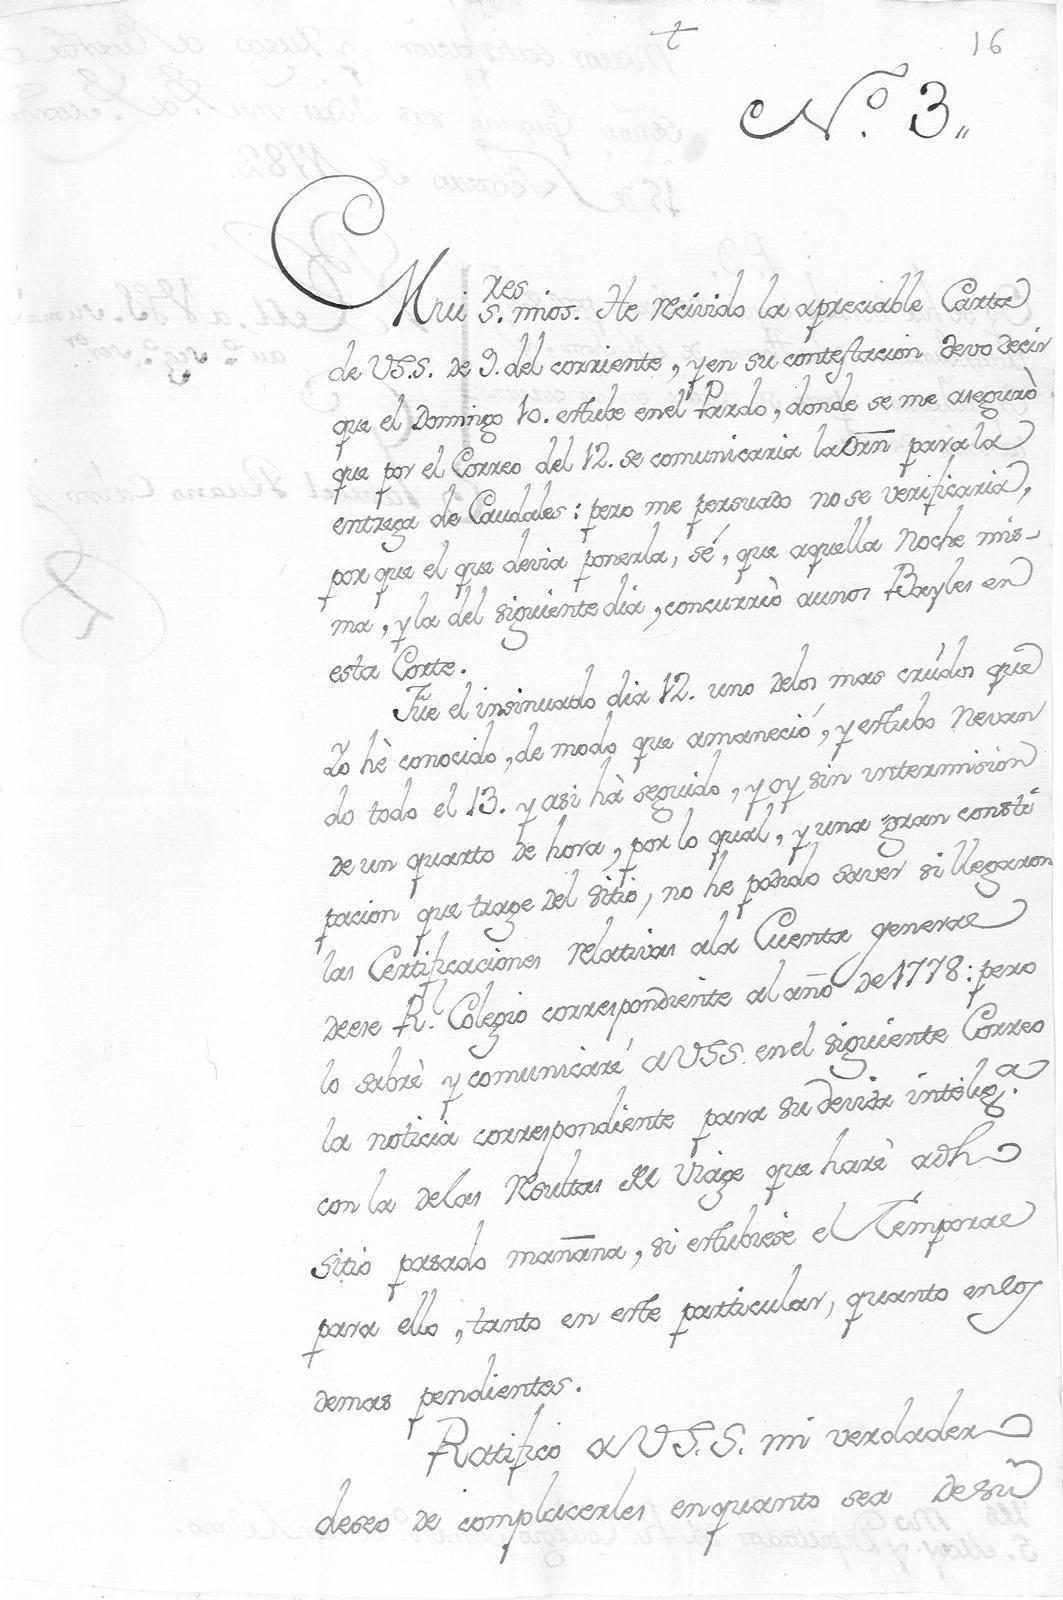 +
16
Nº. 3,,
Mui S.res mios. He recivido la apreciable Carta
de VS.S. de 9. del corriente, y en su contestacion devo decir
que el Domingo 10. estube en el Pardo, donde se me aseguró
que por el Correo del 12. se comunicaria la Orñ para la
entrega de Caudales: pero me persuado no se verificaria,
por que el que devia ponerla, sé, que aquella Noche mis-
ma, y la del siguiente dia, concurriò a unos Bayles en
esta Corte.
Fue el insinuado dia 12. uno delos mas crúdos que
Yo hè conocido, de modo que amaneció, y estubo Nevan
do todo el 13. y asi hà seguido, y oy sin intermision
de un quarto de hora, por lo qual, y una gran consti
pacion que trage del sitio, no he podido saver si llegaron
las Certificaciones relativas ala Cuenta general
de ese Rl. Colegio correspondiente al año de 1778: pero
lo sabrè y comunicaré a VSS. en el siguiente Correo
la noticia correspondiente para su devida intelig.a
con la de las resultas del Viage que harè a dho
sitio pasado mañana, si estubiese el Temporal
para ello, tanto en este particular, quanto en los
demas pendientes.
Ratifico a VS.S. mi verdadero
deseo de complacerles en quanto sea de su